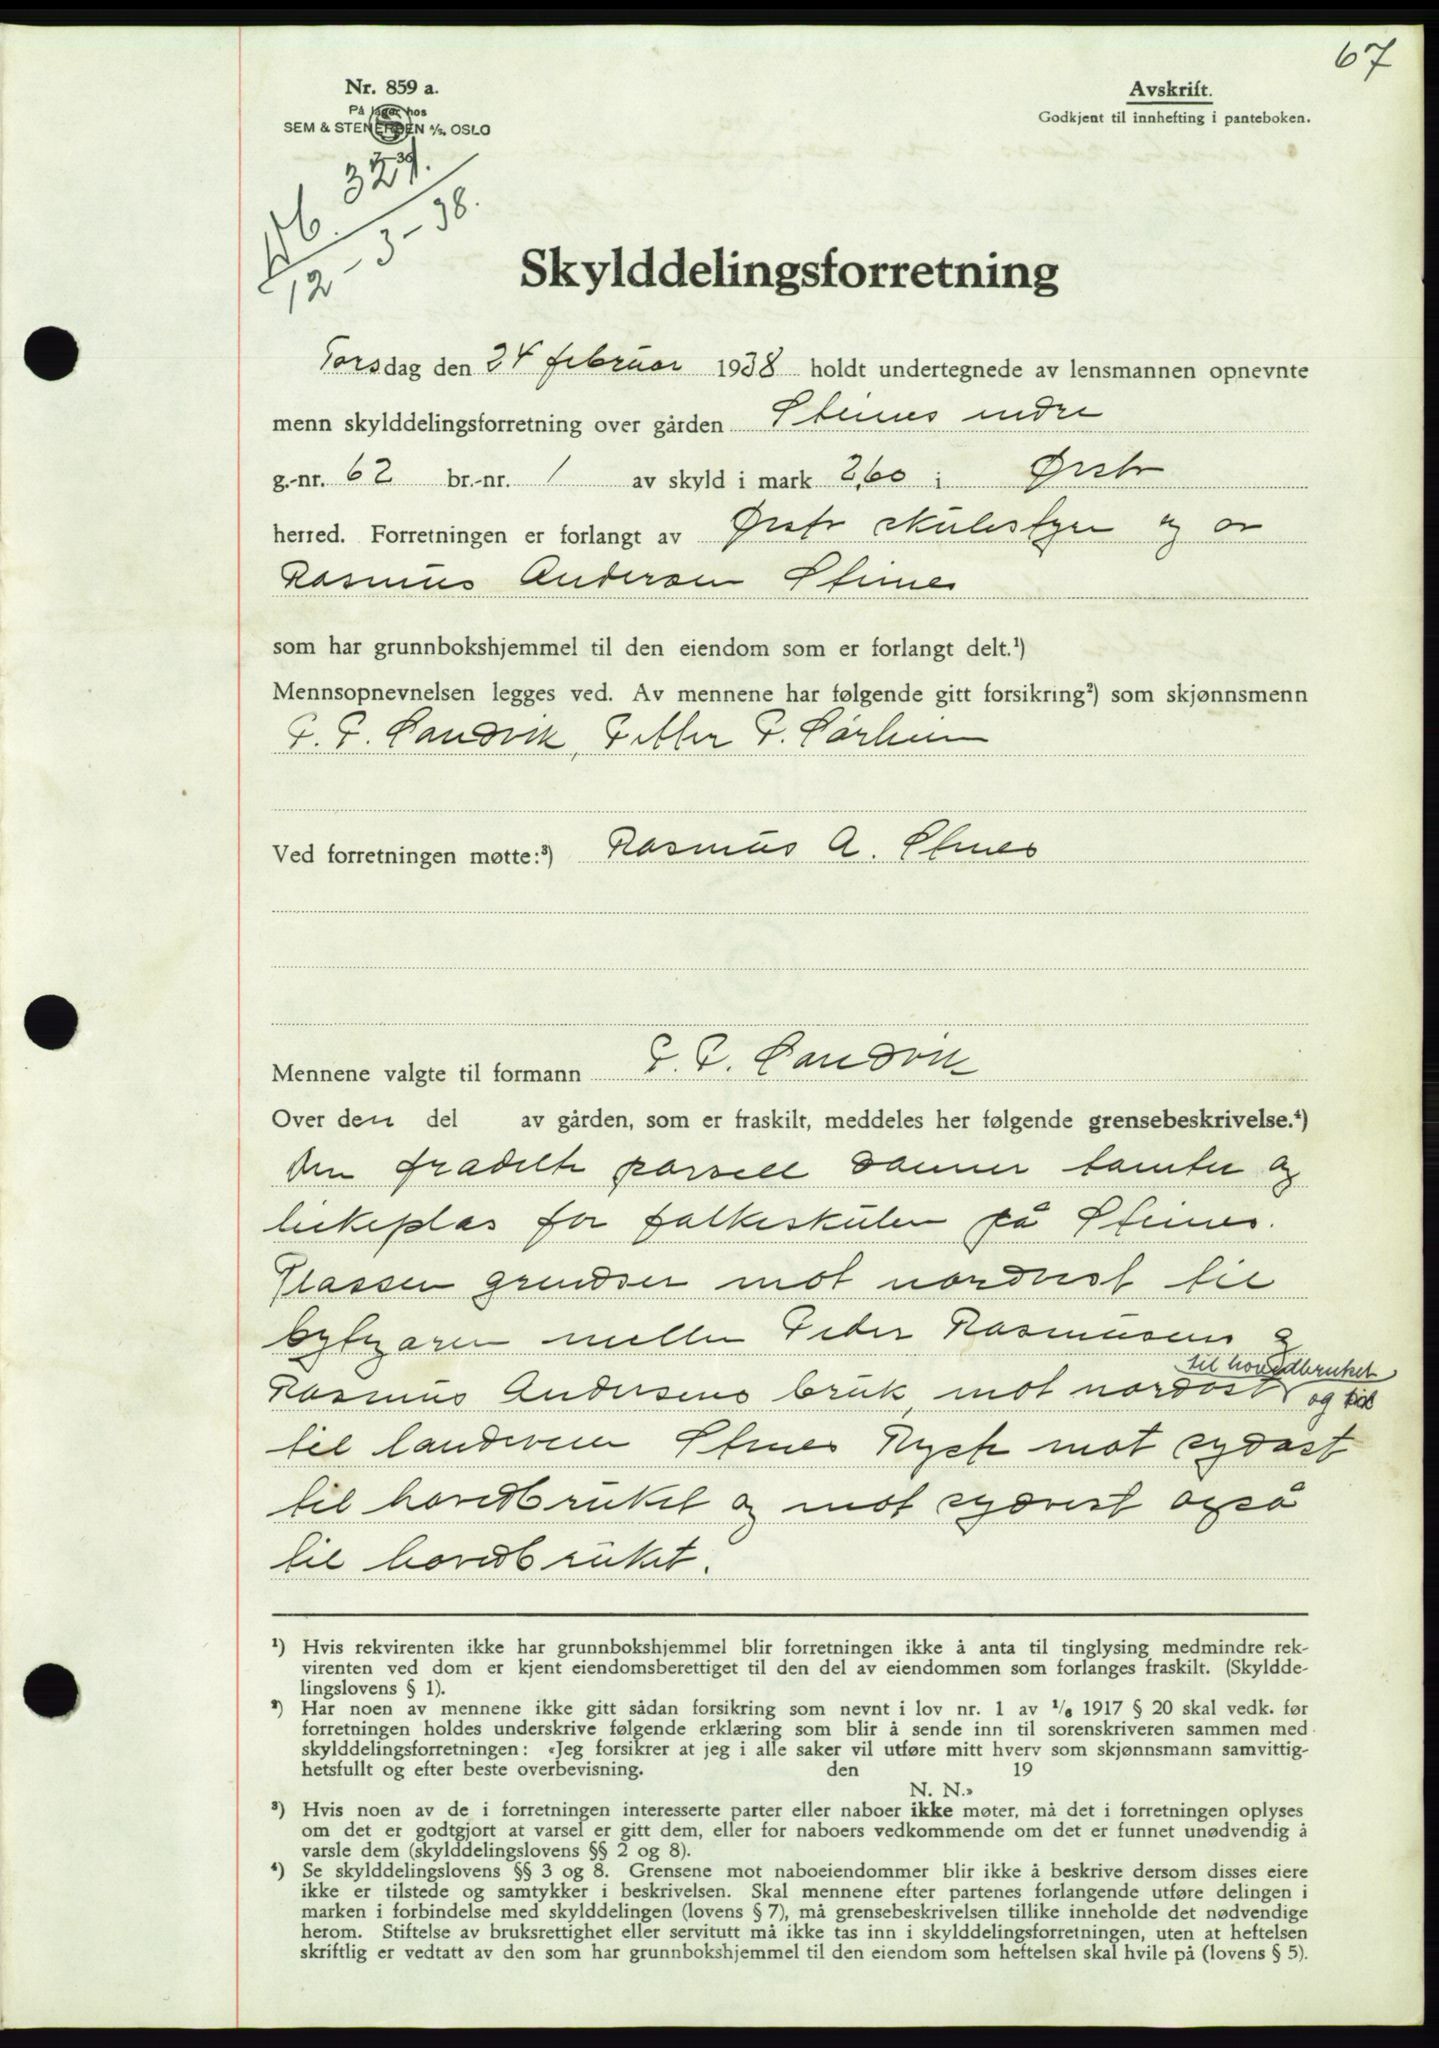 67
Nr. 859 a.
På lager hos
SEM & STENERSEN A/S, OSLO
7-36
Avskrift.
Godkjent til innhefting i panteboken.
321.
12-3-38.
Skylddelingsforretning
Torsdag den 24 februar 1938 holdt undertegnede av lensmannen opnevnte
menn skylddelingsforretning over gården Steines indre
g.-nr. 62 br.-nr. 1 av skyld i mark 2,60 i Ørsta
herred. Forretningen er forlangt av Ørsta skulestyre og av
Rasmus Andersen Steines
som har grunnbokshjemmel til den eiendom som er forlangt delt.¹)
Mennsopnevnelsen legges ved. Av mennene har følgende gitt forsikring²) som skjønnsmenn
P. P. Sandvik, Petter P. Sørheim
Ved forretningen møtte:³) Rasmus A. Stines
Mennene valgte til formann P. P. Sandvik
Over den del av gården, som er fraskilt, meddeles her følgende grensebeskrivelse.⁴)
Den fradelte parsell danner tomter og
leikeplas for folkeskulen på Steines.
Plassen grendser mot nordvest til
bytgaren mellem Peder Rasmusens og
til hovedbruket
Rasmus Andersens bruk, mot nordost og
til landeveien Stines Rysta mot sydost
til hovedbruket og mot sydvest også
til hovedbruket.
¹) Hvis rekvirenten ikke har grunnbokshjemmel blir forretningen ikke å anta til tinglysing medmindre rek-
virenten ved dom er kjent eiendomsberettiget til den del av eiendommen som forlanges fraskilt. (Skyldde-
lingslovens § 1).
²) Har noen av mennene ikke gitt sådan forsikring som nevnt i lov nr. 1 av 1/6 1917 § 20 skal vedk. før
forretningen holdes underskrive følgende erklæring som blir å sende inn til sorenskriveren sammen med
skylddelingsforretningen: «Jeg forsikrer at jeg i alle saker vil utføre mitt hverv som skjønnsmann samvittig-
hetsfullt og efter beste overbevisning. den 19
N. N.»
³) Hvis noen av de i forretningen interesserte parter eller naboer ikke møter, må det i forretningen oplyses
om det er godtgjort at varsel er gitt dem, eller for naboers vedkommende om det er funnet unødvendig å
varsle dem (skylddelingslovens §§ 2 og 8).
⁴) Se skylddelingslovens §§ 3 og 8. Grensene mot naboeiendommer blir ikke å beskrive dersom disses eiere
ikke er tilstede og samtykker i beskrivelsen. Skal mennene efter partenes forlangende utføre delingen i
marken i forbindelse med skylddelingen (lovens § 7), må grensebeskrivelsen tillike inneholde det nødvendige
herom. Stiftelse av bruksrettighet eller servitutt må ikke tas inn i skylddelingsforretningen, uten at heftelsen
skriftlig er vedtatt av den som har grunnbokshjemmel til den eiendom som heftelsen skal hvile på (lovens § 5).